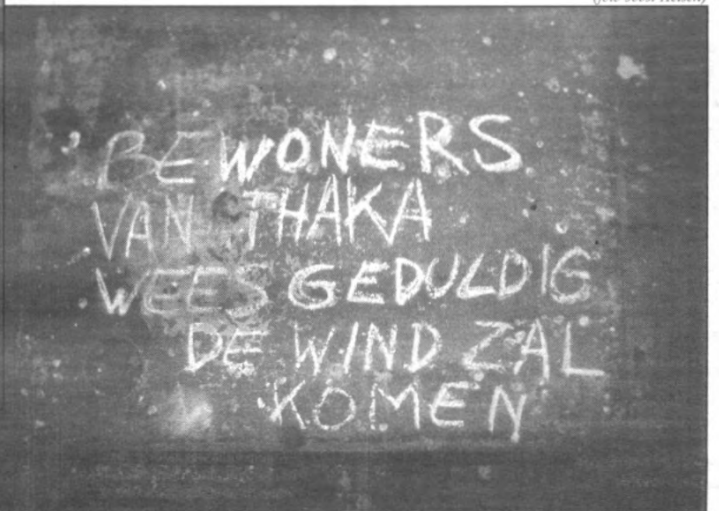 BEWONERS
VAN THAKA
WEES GEDULDIG
DE WIND ZAL
KOMEN